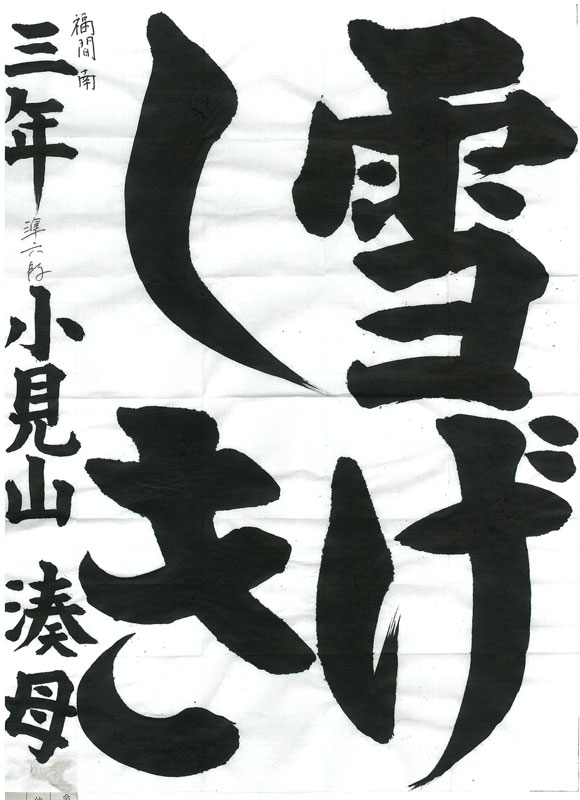 雪げ
しき
福間南
三年 準六段 小見山 湊母